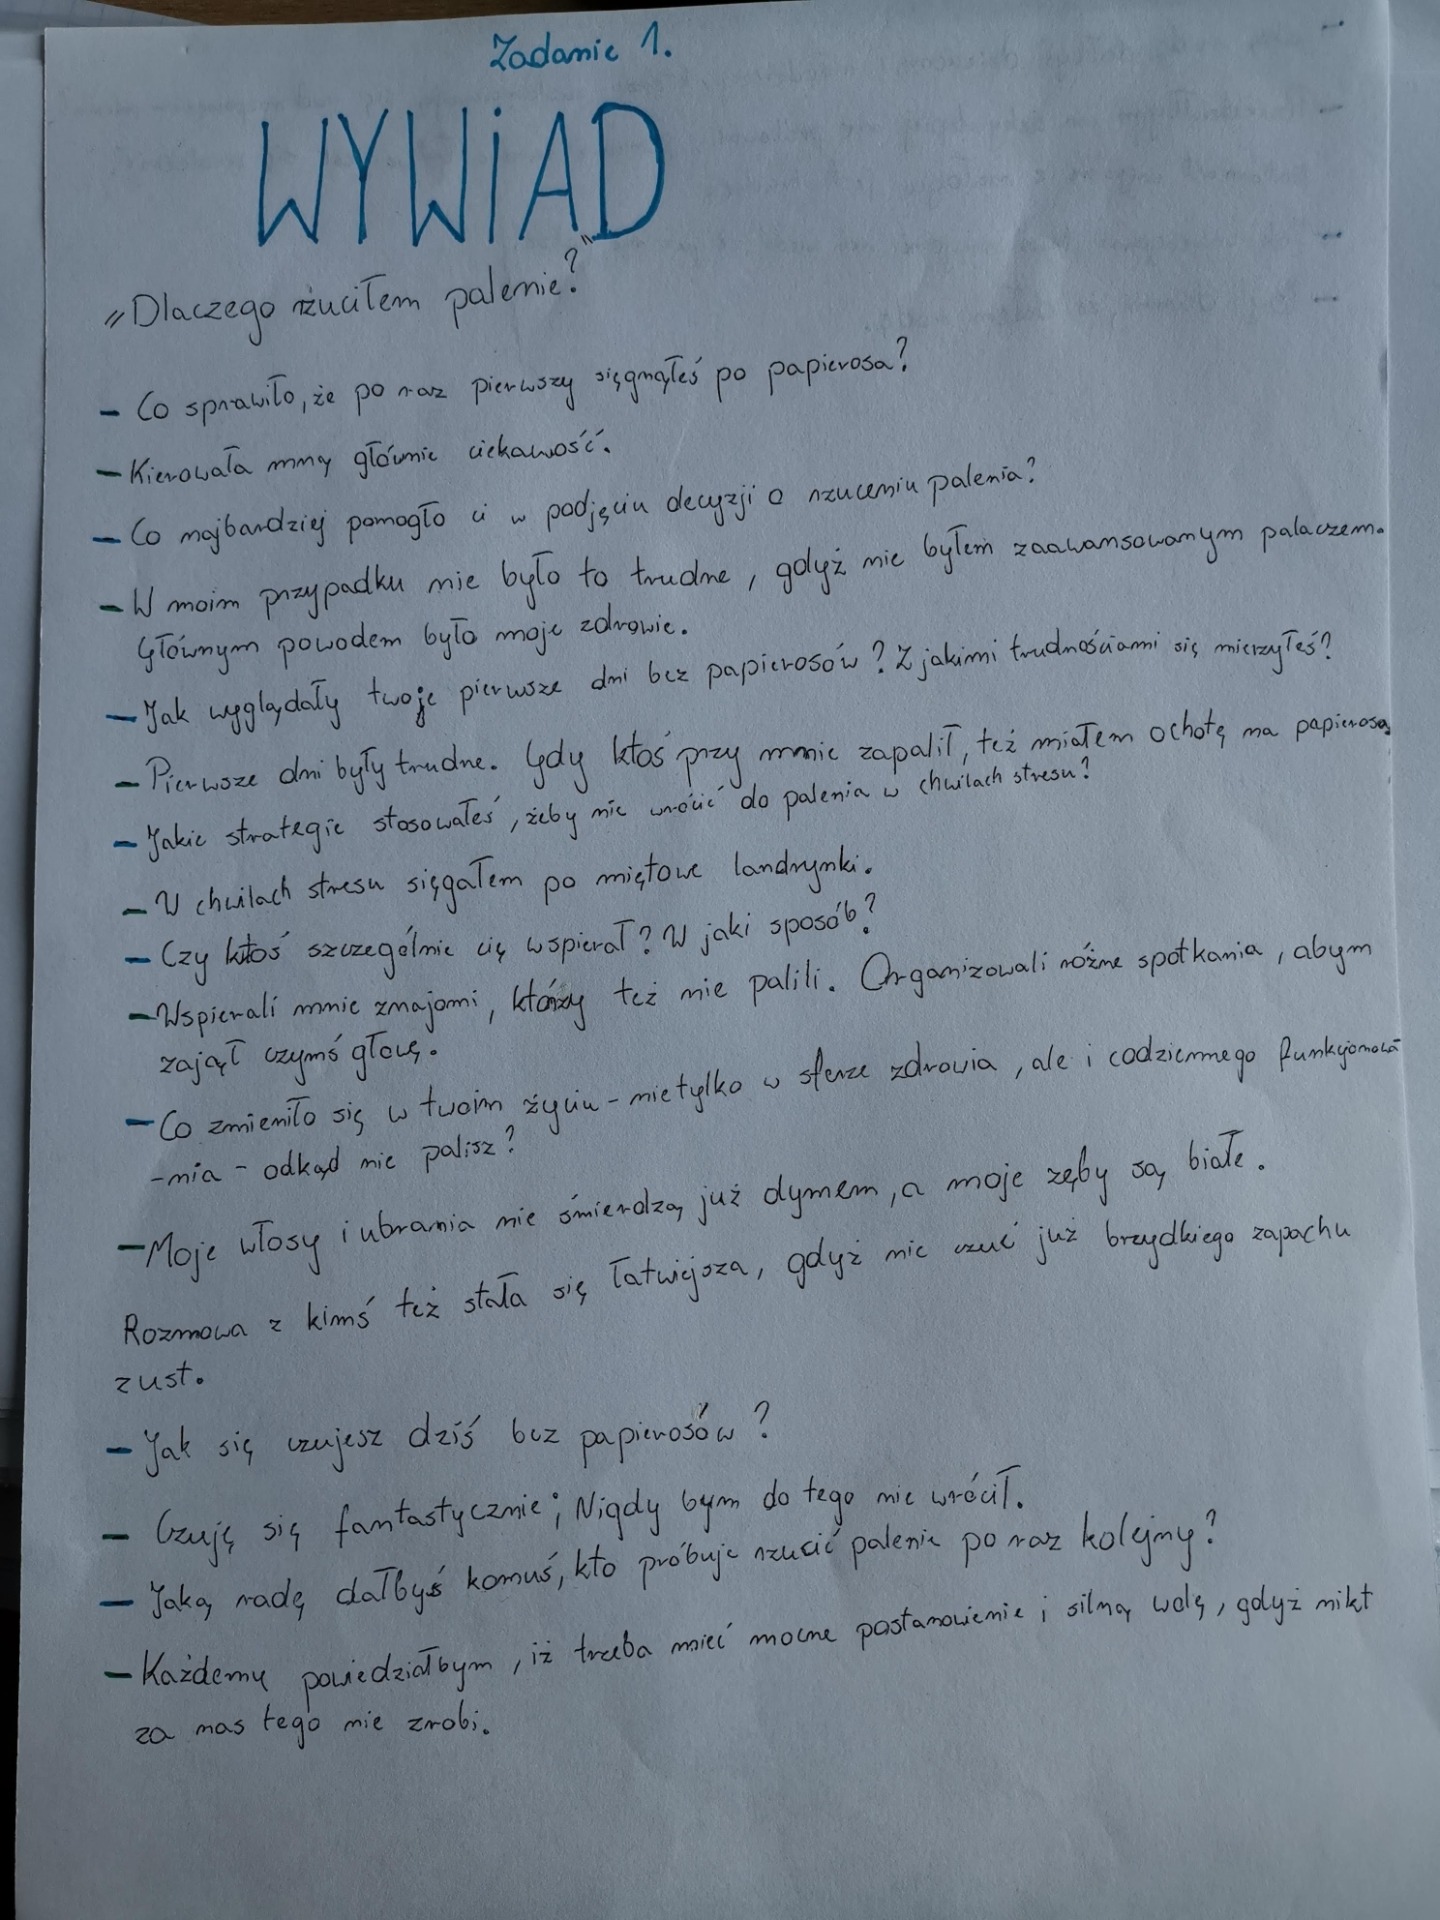 Zadanie 1.
WYWiAD
„Dlaczego rzuciłem palenie?"
- Co sprawiło, że po raz pierwszy sięgnąłeś po papierosa?
- Kierowała mną głównie ciekawość.
- Co najbardziej pomogło ci w podjęciu decyzji o rzuceniu palenia?
- W moim przypadku nie było to trudne, gdyż nie byłem zaawansowanym palaczem.
Głównym powodem było moje zdrowie.
- Jak wyglądały twoje pierwsze dni bez papierosów? Z jakimi trudnościami się mierzyłeś?
- Pierwsze dni były trudne. Gdy ktoś przy mnie zapalił, też miałem ochotę na papierosa.
- Jakie strategie stosowałeś, żeby nie wrócić do palenia w chwilach stresu?
- W chwilach stresu sięgałem po miętowe landrynki.
- Czy ktoś szczególnie cię wspierał? W jaki sposób?
- Wspierali mnie znajomi, którzy też nie palili. Organizowali różne spotkania, abym
zajął czymś głowę.
- Co zmieniło się w twoim życiu - nie tylko w sferze zdrowia, ale i codziennego funkcjonowa
-nia - odkąd nie palisz?
- Moje włosy i ubrania nie śmierdzą już dymem, a moje zęby są białe.
Rozmowa z kimś też stała się łatwiejsza, gdyż nie czuć już brzydkiego zapachu
z ust.
- Jak się czujesz dziś bez papierosów?
- Czuję się fantastycznie; Nigdy bym do tego nie wrócił.
- Jaką radę dałbyś komuś, kto próbuje rzucić palenie po raz kolejny?
- Każdemu powiedziałbym, iż trzeba mieć mocne postanowienie i silną wolę, gdyż nikt
za nas tego nie zrobi.